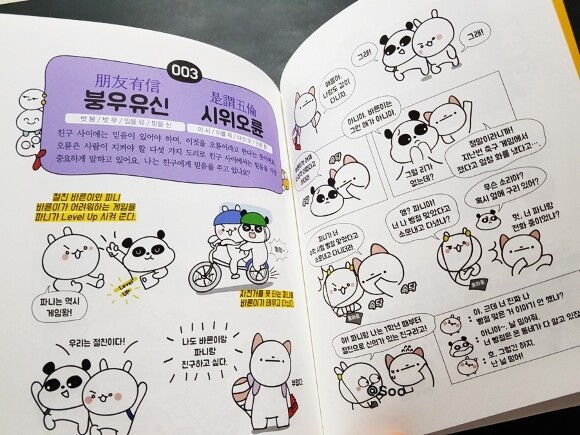 003
朋友有信
붕우유신
벗 붕 / 벗 우 / 있을 유 / 믿을 신
是謂五倫
시위오륜
친구 사이에는 믿음이 있어야 하며, 이것을 오륜이라고
오륜은 사람이 지켜야 할 다섯 가지 도리로 친구 사이에서는 믿음을 가장
중요하게 말하고 있어요. 나는 친구에게 믿음을 주고 있나요?
절친 바른이와 파니
바른이가 어려워하는 게임을
파니가 Level Up 시켜 준다.
Level
UP
파니는 역시
게임왕!
자전거를 못 타는 파니를
바른이가 태우고 다닌다.
우리는 절친이다!
나도 바른이랑
파니랑
친구하고 싶다.
그래!
그래!
얘들아,
나랑도 같이
다니자.
아니야. 바른이는
그런 애가 아니야.
그럴 리가
없는데?
정말이라니까!
지난번 축구 게임에서
졌다고 엄청 화를 냈다고…
파니가 너
빵점 맞았다고
소문내고 다니더라.
속닥
속닥
엥? 파니야!
너 나 빵점 맞았다고
소문내고 다녔냐?
무슨 소리야?
혹시 앞에 구리 있어?
헛, 너 파니랑
전화 중이었냐?
야! 파니랑 나는 1학년 때부터
절친으로 신의가 있는 친구라고!
: 야, 근데 너 진짜 나
빵점 맞은 거 이야기 안 했냐?
: 아니야~, 날 믿어줘.
너 빵점은 온 동네가 다 알고 있어.
: 오, 그렇긴 하지.
난 널 믿어!
@Soo